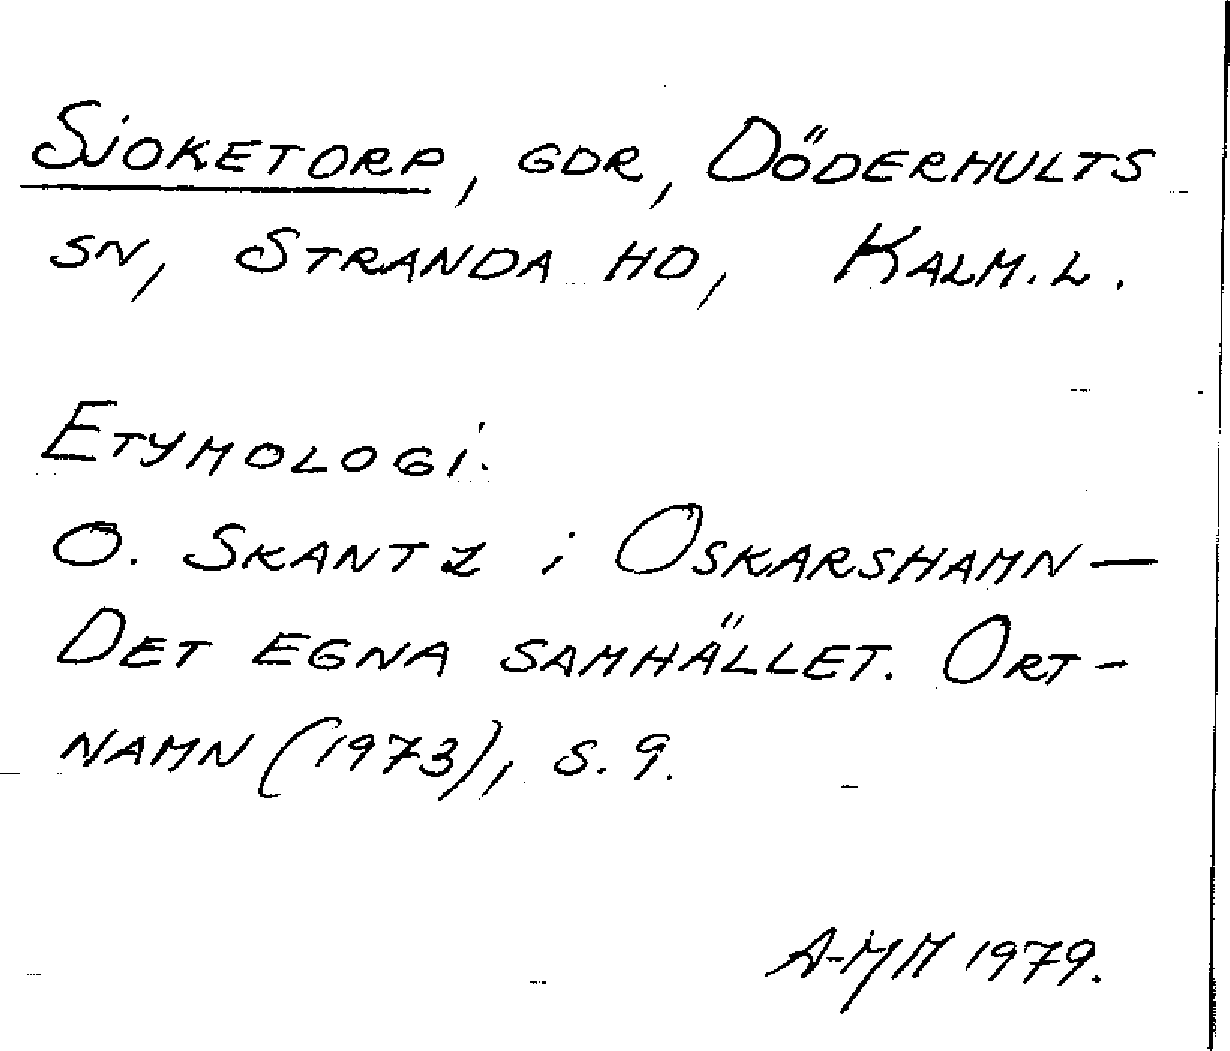 Sjoketorp, gdr, Döderhults
sn, Stranda hd, Kalm. l.
Etymologi:
O. Skantz i Oskarshamn —
Det egna samhället. Ort-
namn (1973), s. 9.
A-MM 1979.